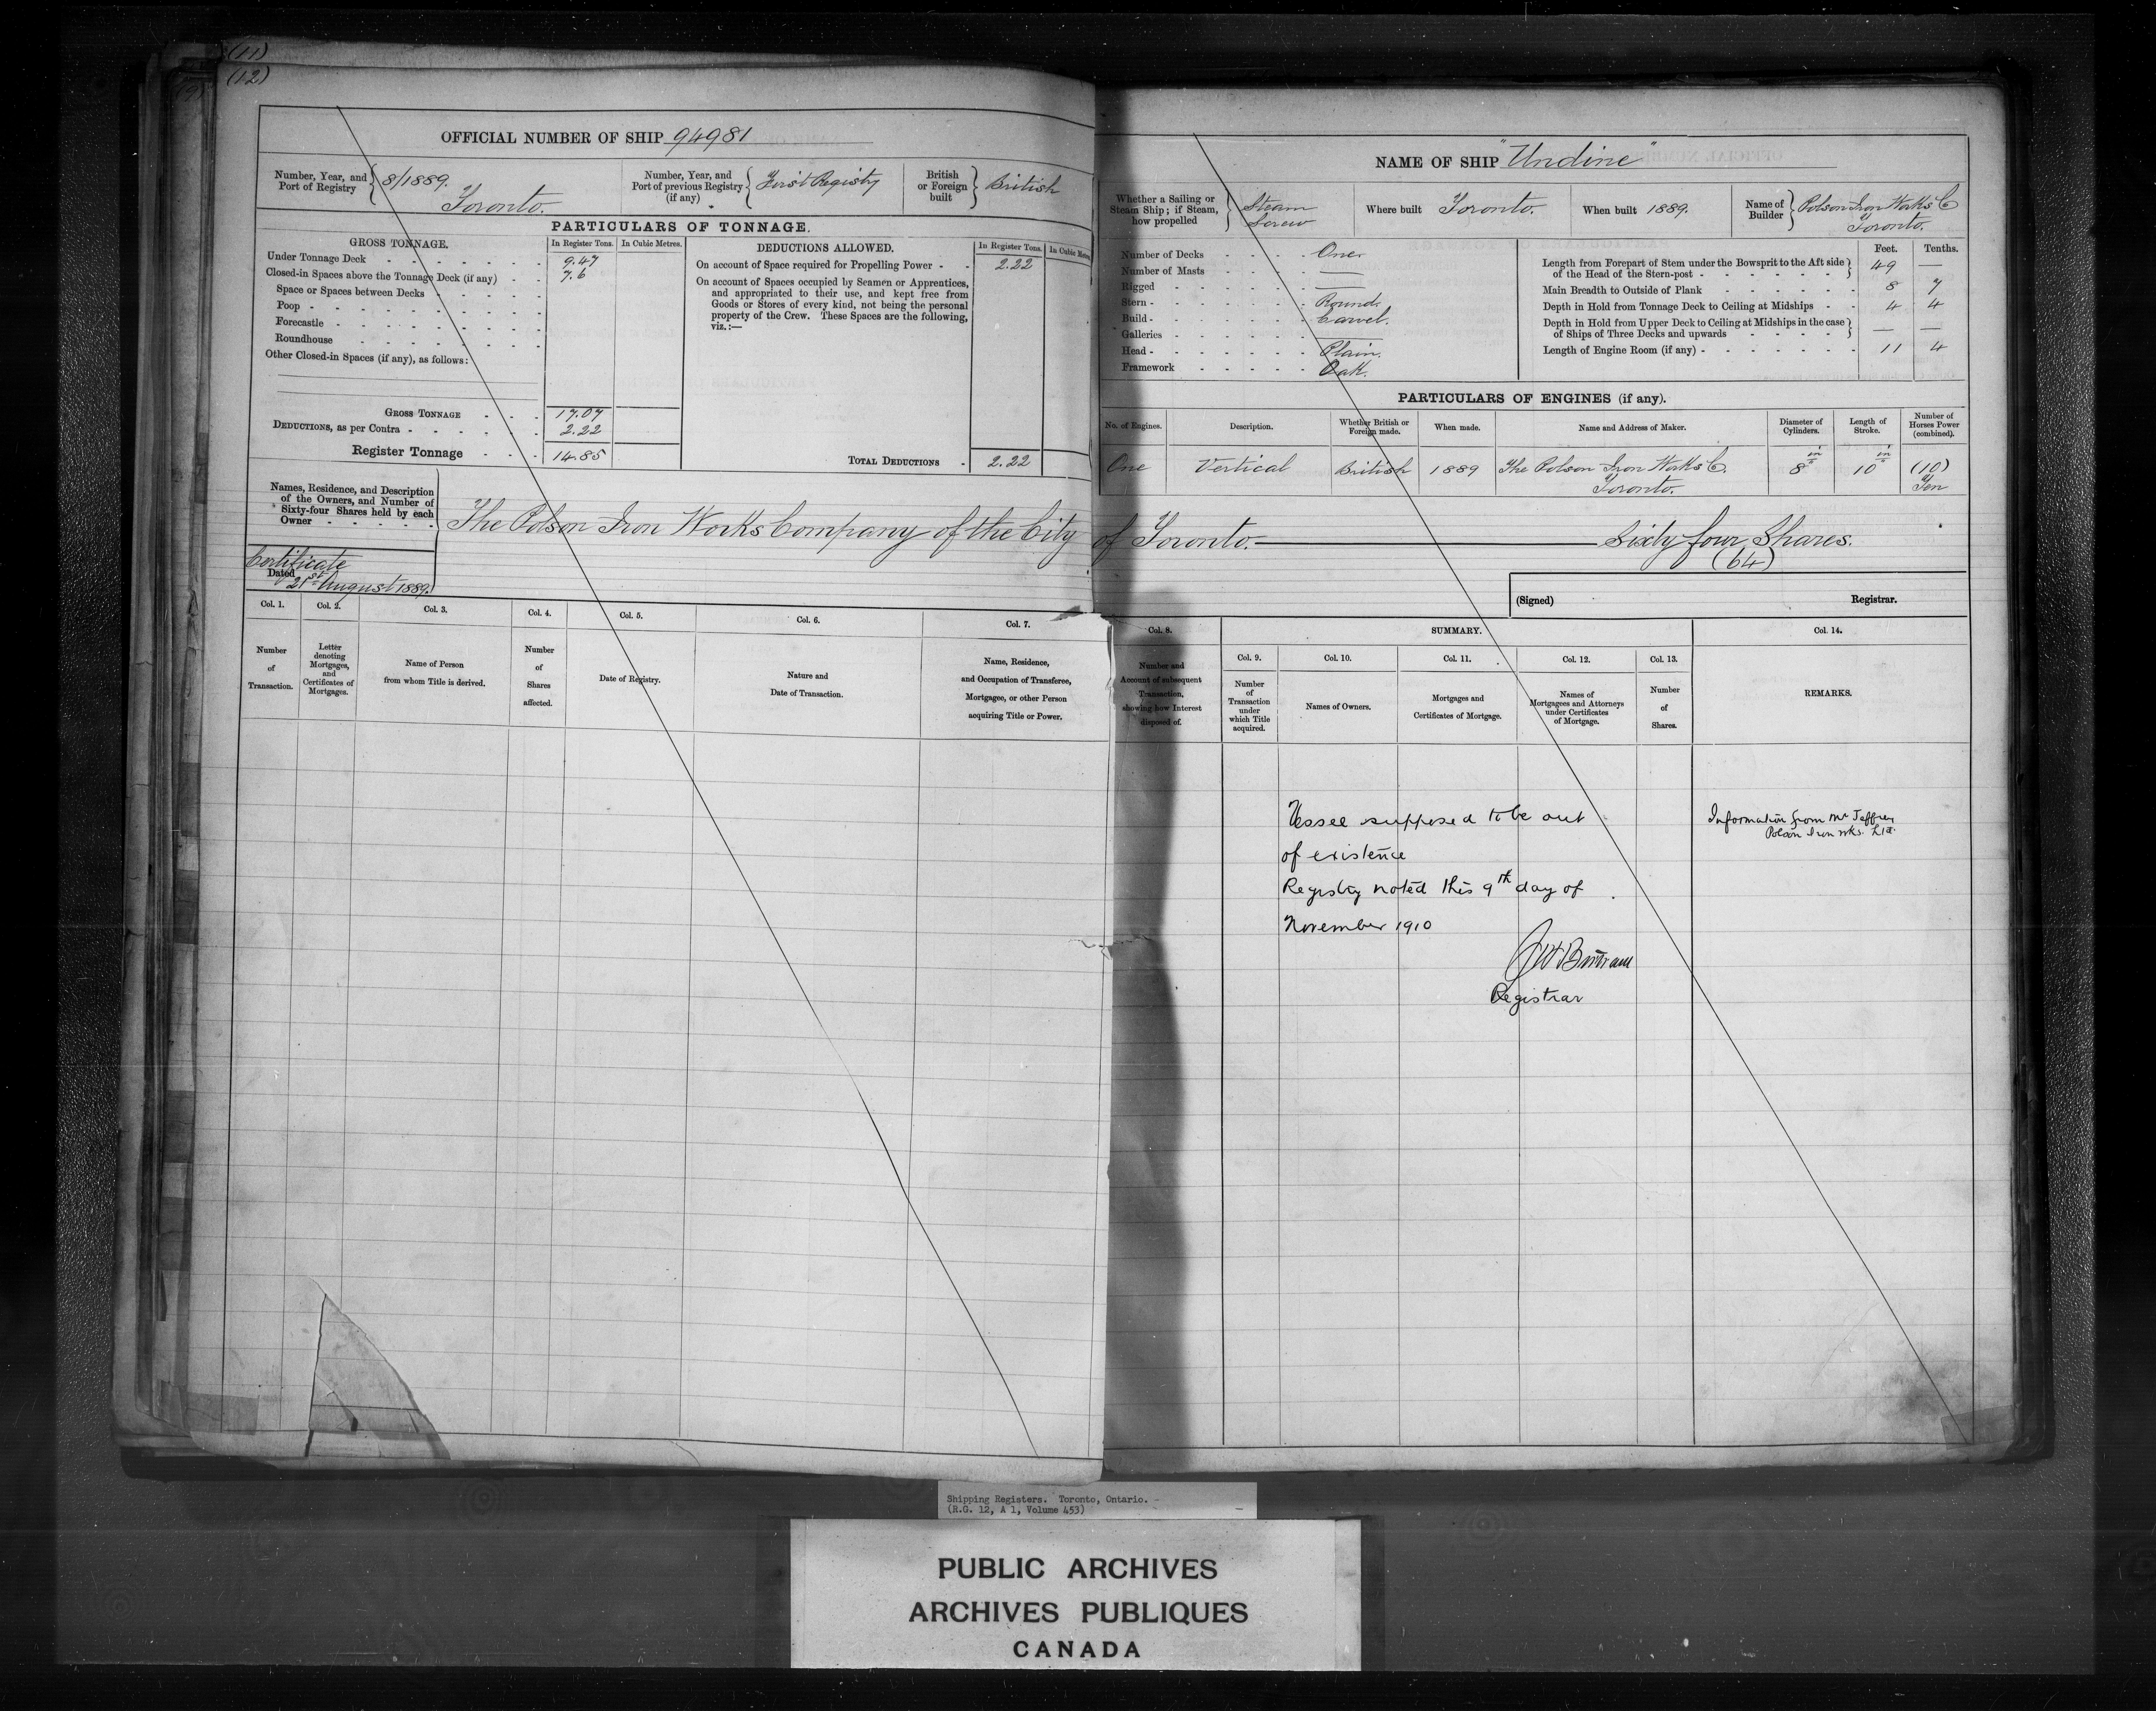 (11)
(12)
OFFICIAL NUMBER OF SHIP 94981
Number, Year, and Port of Registry 8/1889. Toronto.
Number, Year, and Port of previous Registry (if any) First Registry
British or Foreign built British
PARTICULARS OF TONNAGE.
GROSS TONNAGE. In Register Tons. In Cubic Metres.
Under Tonnage Deck 9.47
Closed-in Spaces above the Tonnage Deck (if any) 7.6
Space or Spaces between Decks
Poop
Forecastle
Roundhouse
Other Closed-in Spaces (if any), as follows:
GROSS TONNAGE 17.07
DEDUCTIONS, as per Contra 2.22
Register Tonnage 14.85
DEDUCTIONS ALLOWED. In Register Tons. In Cubic Metres
On account of Space required for Propelling Power 2.22
On account of Spaces occupied by Seamen or Apprentices,
and appropriated to their use, and kept free from
Goods or Stores of every kind, not being the personal
property of the Crew. These Spaces are the following,
viz.:—
TOTAL DEDUCTIONS 2.22
Names, Residence, and Description
of the Owners, and Number of
Sixty-four Shares held by each
Owner
The Polson Iron Works Company of the City of Toronto. Sixty four Shares.
(64)
Certificate
Dated 21st August 1889.
NAME OF SHIP "Undine"
Whether a Sailing or Steam Ship; if Steam, how propelled Steam Screw
Where built Toronto.
When built 1889.
Name of Builder Polson Iron Works Co Toronto.
Number of Decks One
Number of Masts —
Rigged —
Stern Round.
Build Carvel.
Galleries —
Head Plain.
Framework Oak.
Feet. Tenths.
Length from Forepart of Stem under the Bowsprit to the Aft side
of the Head of the Stern-post 49 —
Main Breadth to Outside of Plank 8 7
Depth in Hold from Tonnage Deck to Ceiling at Midships 4 4
Depth in Hold from Upper Deck to Ceiling at Midships in the case
of Ships of Three Decks and upwards — —
Length of Engine Room (if any) 11 4
PARTICULARS OF ENGINES (if any).
No. of Engines. Description. Whether British or Foreign made. When made. Name and Address of Maker. Diameter of Cylinders. Length of Stroke. Number of Horses Power (combined).
One Vertical British 1889 The Polson Iron Works Co. Toronto. 8 in 10 in (10) Ten
(Signed) Registrar.
Col. 1. Col. 2. Col. 3. Col. 4. Col. 5. Col. 6. Col. 7.
Number of Transaction.
Letter denoting Mortgages, and Certificates of Mortgages.
Name of Person from whom Title is derived.
Number of Shares affected.
Date of Registry.
Nature and Date of Transaction.
Name, Residence, and Occupation of Transferee, Mortgagee, or other Person acquiring Title or Power.
Col. 8. SUMMARY. Col. 14.
Col. 9. Col. 10. Col. 11. Col. 12. Col. 13.
Number and Account of subsequent Transaction, showing how Interest disposed of.
Number of Transaction under which Title acquired.
Names of Owners.
Mortgages and Certificates of Mortgage.
Names of Mortgagees and Attorneys under Certificates of Mortgage.
Number of Shares.
REMARKS.
Vessel supposed to be out
of existence
Registry noted this 9th day of
November 1910
Registrar
Information from Mr Jeffrey
Polson Iron Wks. Ltd.
Shipping Registers. Toronto, Ontario. -
(R.G. 12, A 1, Volume 453)
PUBLIC ARCHIVES
ARCHIVES PUBLIQUES
CANADA